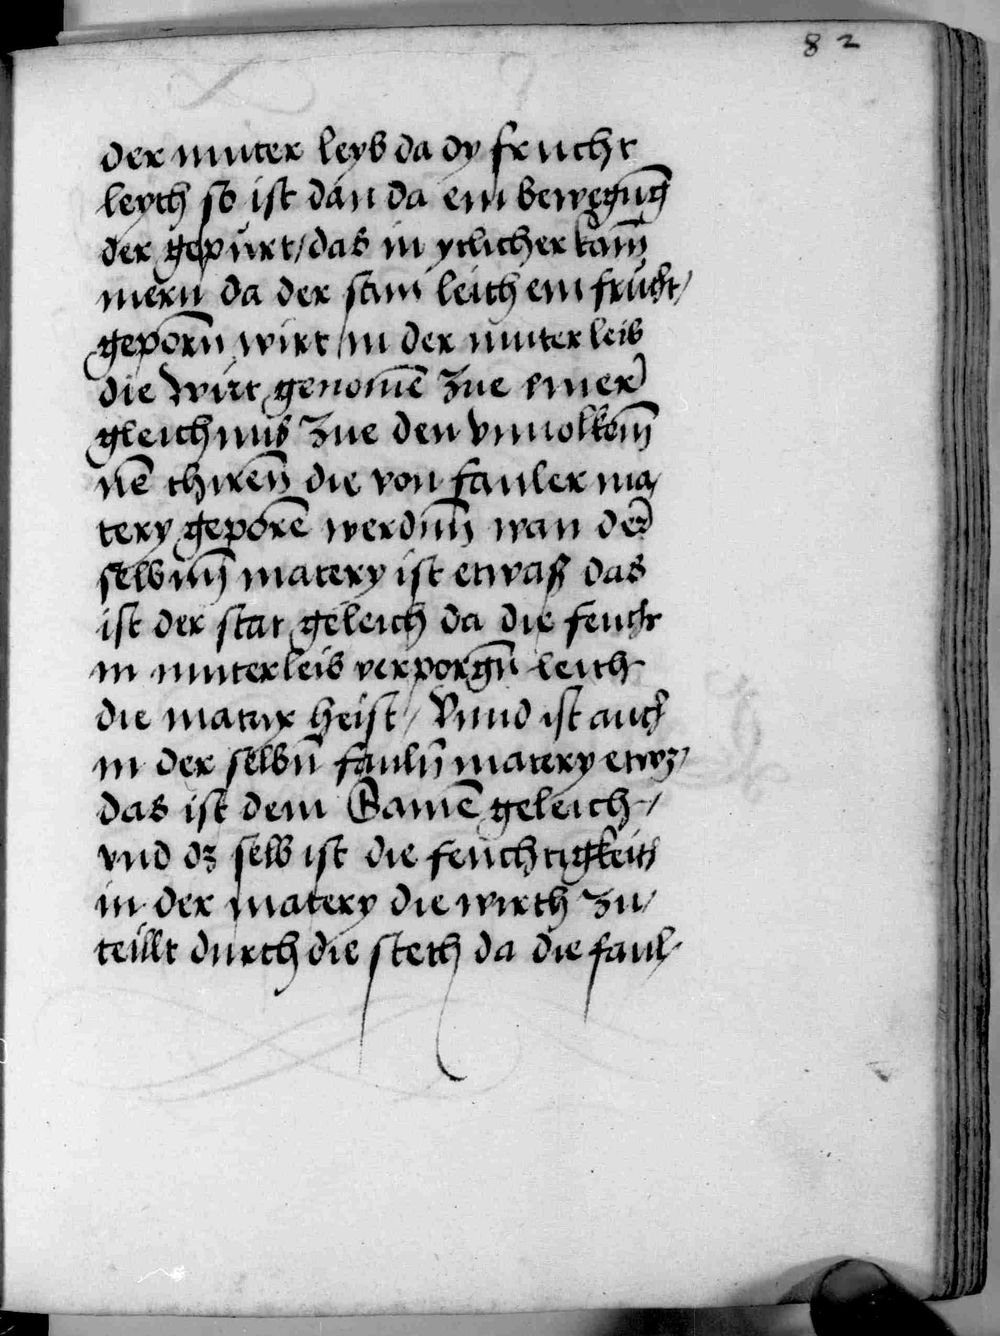 82
der muter leyb da dy frucht
leyth so ist dan da ein bewegūg
der gepurt / das in ytlicher kam̄
mern da der sam leith ein frucht /
geporn̄ wirt in der muter leib
die wirt genomē zue einer
gleichnus zue den vnuolkom̄
nē thiren̄ die von fauler ma
tery geporē werdnn̄ wan der
selbnn̄ matery ist etwaß das
ist der stat geleich da die feucht
in muterleib verporgn̄ leith
die matrix heist / Vnnd ist auch
in der selbn̄ fauln̄ matery etwz /
das ist dem Samē geleich /
vnd dz selb ist die feuchtigkeith
in der matery die wirth zu /
teillt durch die steth da die faul